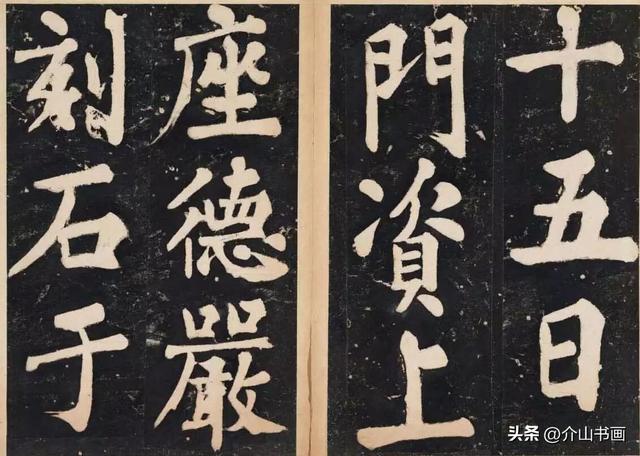 十五日
門資上
座德嚴
刻石于
头条 @介山书画